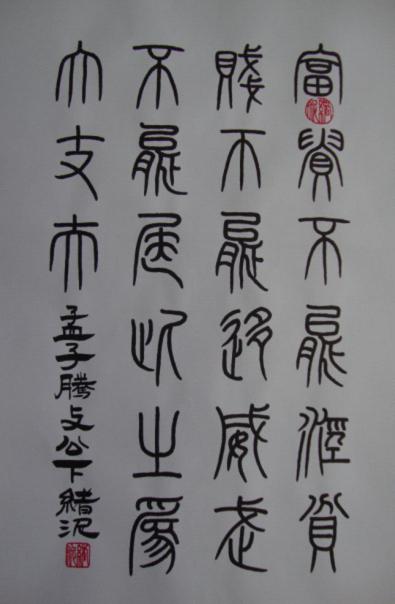 富貴不能淫貧
賤不能移威武
不能屈此之爲
大丈夫孟子滕文公下緒